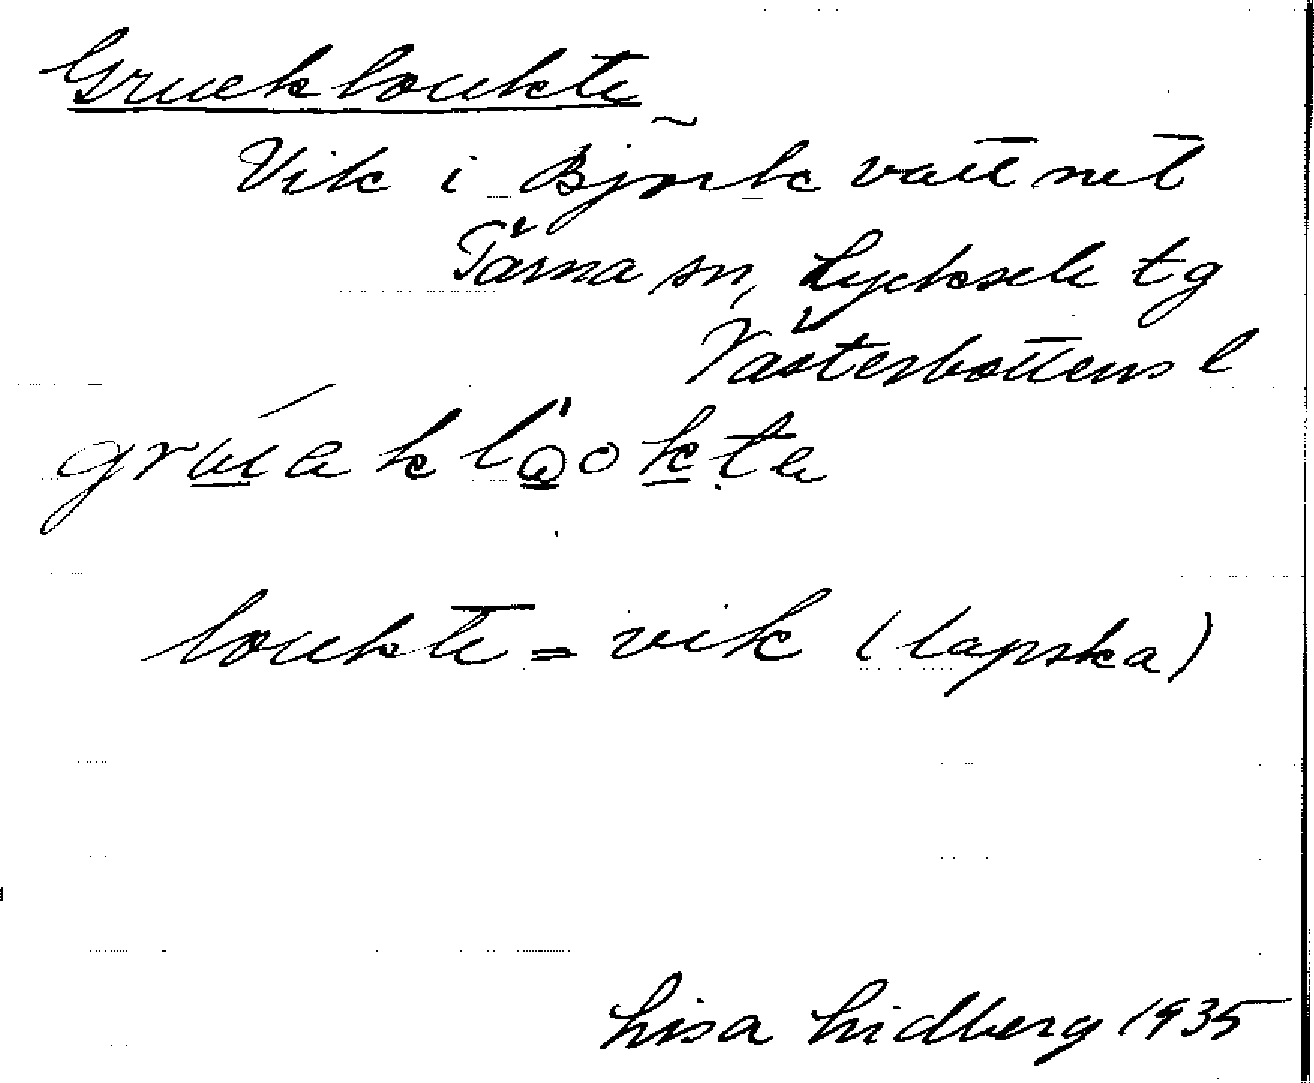 Gruekloukte
Vik i Björkvattnet
Tärna sn, Lycksele tg
Västerbottens l
loukte = vik (lapska)
Lisa Lidberg 1935